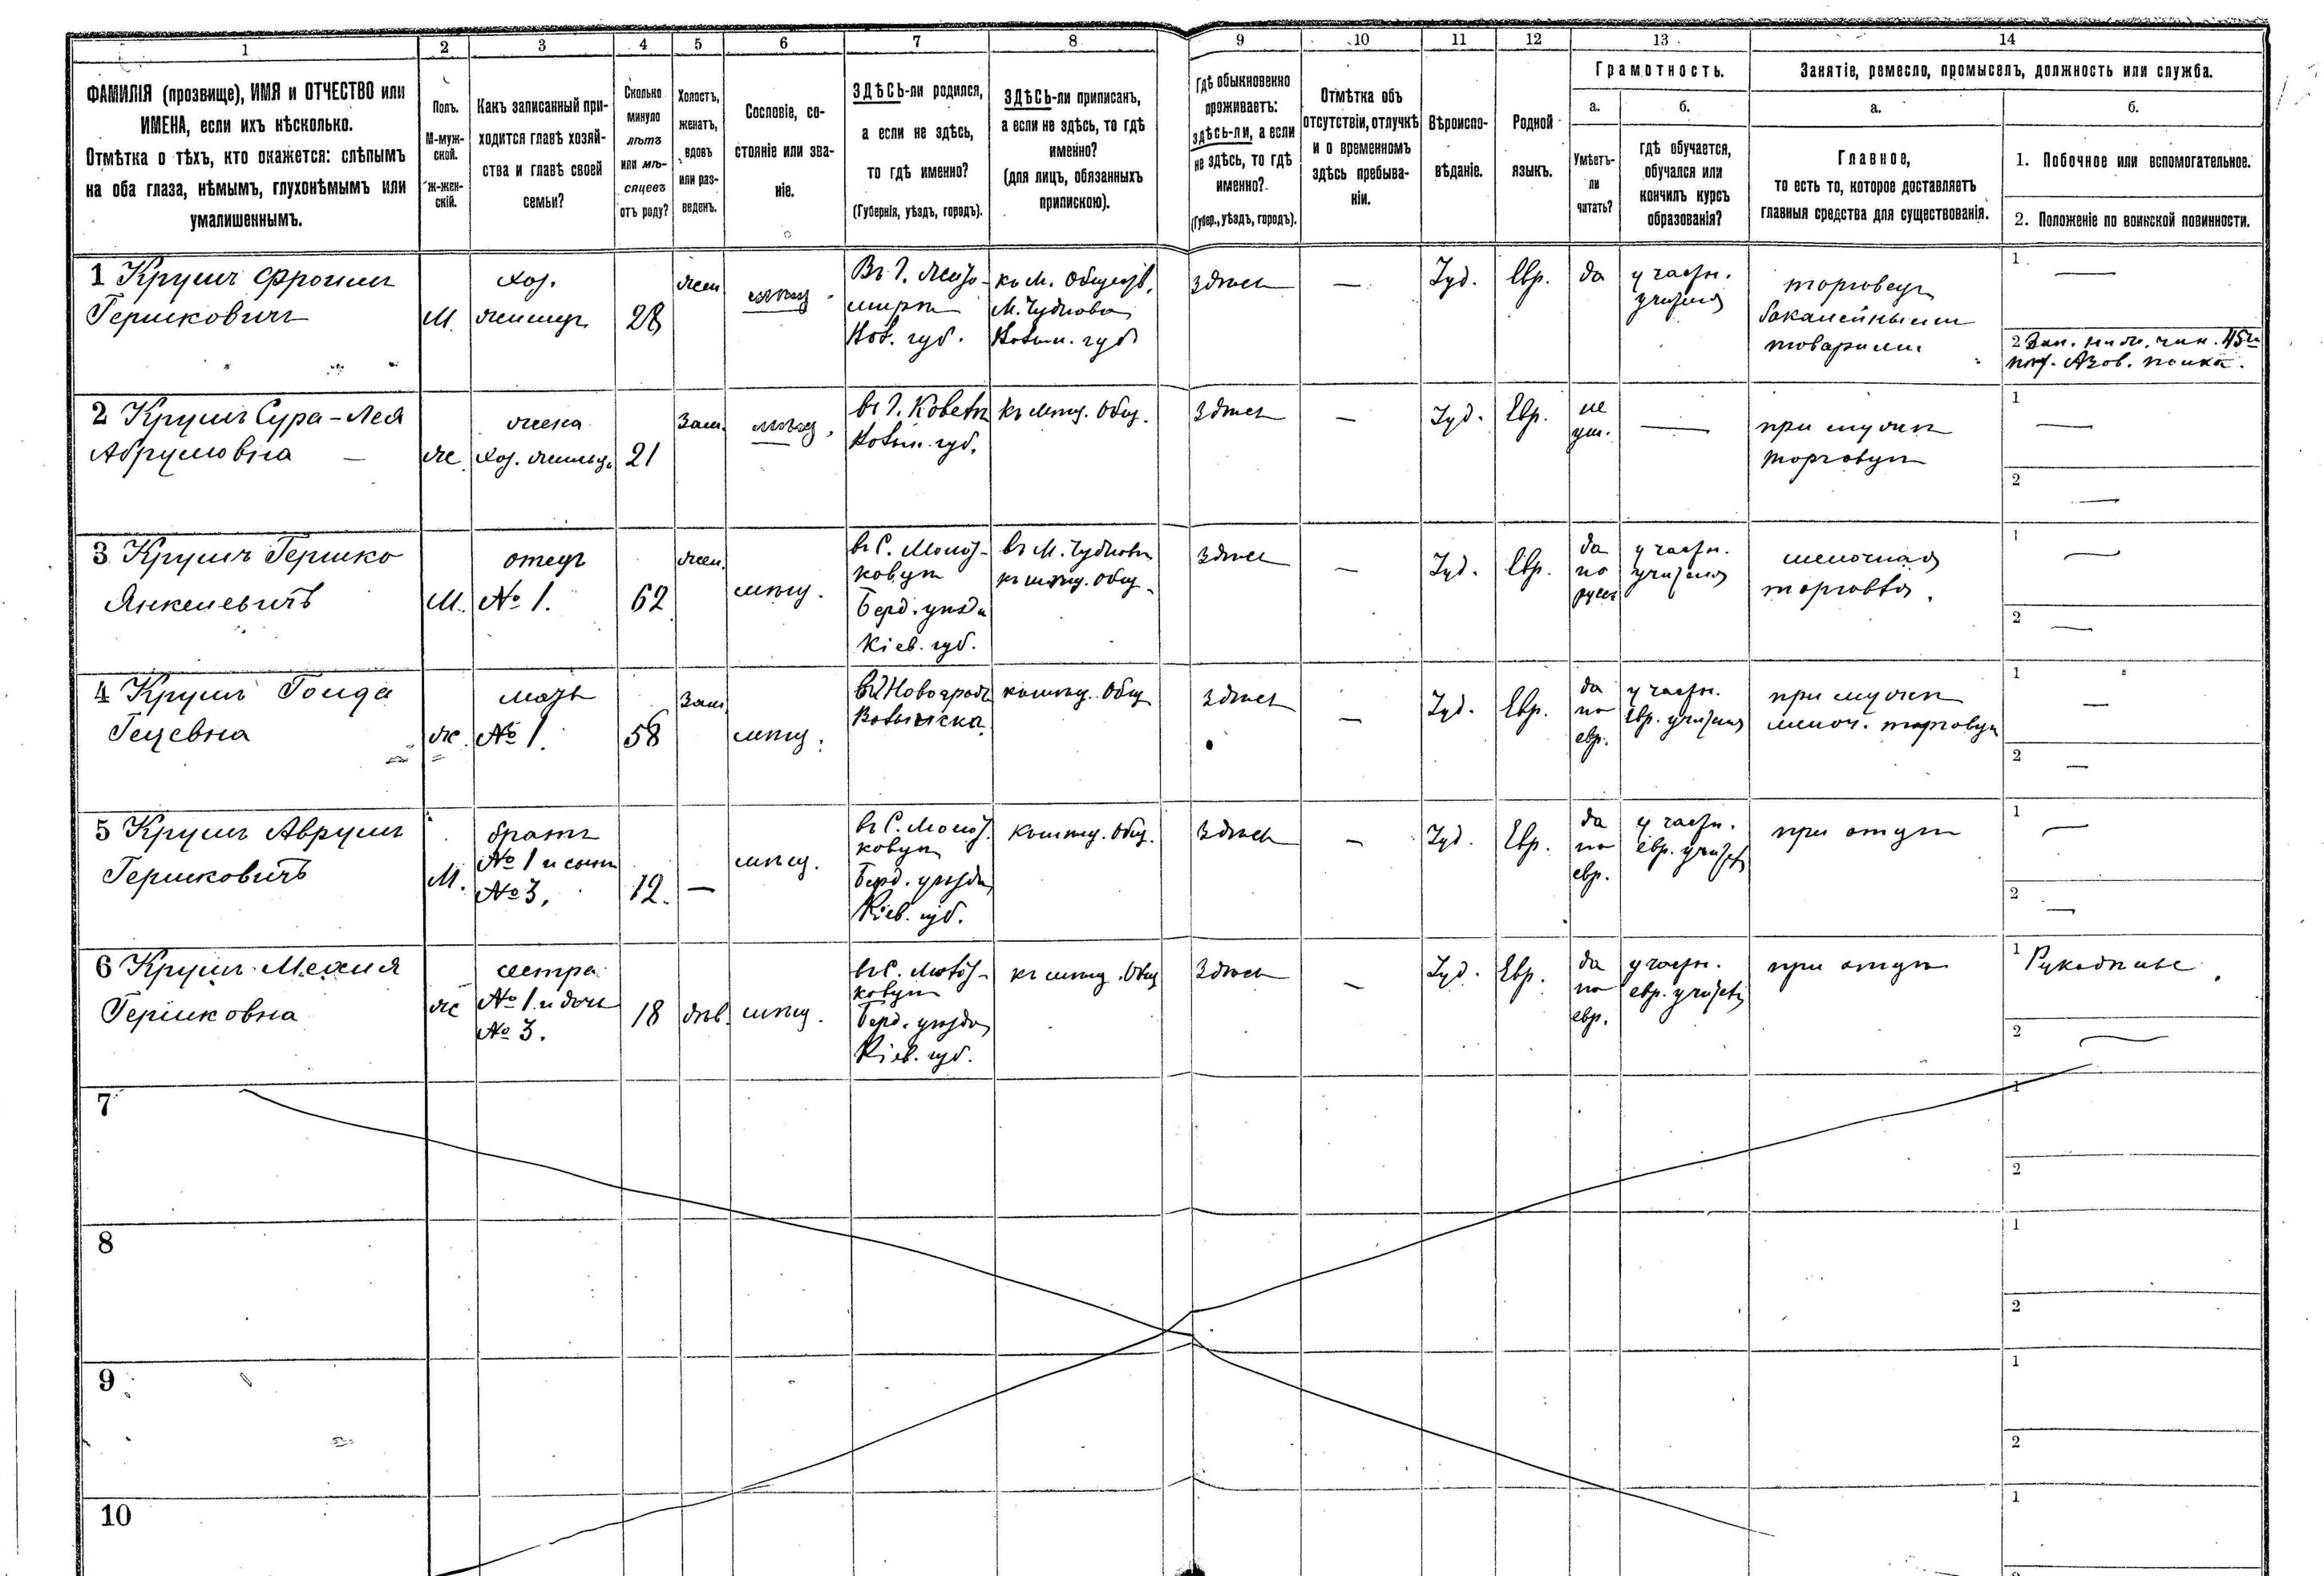 1 2 3 4 5 6 7 8 9 10 11 12 13 14
ФАМИЛІЯ (прозвище), ИМЯ и ОТЧЕСТВО или
ИМЕНА, если ихъ нѣсколько.
Отмѣтка о тѣхъ, кто окажется: слѣпымъ
на оба глаза, нѣмымъ, глухонѣмымъ или
умалишеннымъ.
Полъ.
М-муж-
ской.
Ж-жен-
скій.
Какъ записанный при-
ходится главѣ хозяй-
ства и главѣ своей
семьи?
Сколько
минуло
лѣтъ
или мѣ-
сяцевъ
отъ роду?
Холостъ,
женатъ,
вдовъ
или раз-
веденъ.
Сословіе, со-
стояніе или зва-
ніе.
ЗДѢСЬ-ли родился,
а если не здѣсь,
то гдѣ именно?
(Губернія, уѣздъ, городъ).
ЗДѢСЬ-ли приписанъ,
а если не здѣсь, то гдѣ
именно?
(для лицъ, обязанныхъ
припискою).
Гдѣ обыкновенно
проживаетъ:
здѣсь-ли, а если
не здѣсь, то гдѣ
именно?
(Губер., уѣздъ, городъ).
Отмѣтка объ
отсутствіи, отлучкѣ
и о временномъ
здѣсь пребыва-
ніи.
Вѣроиспо-
вѣданіе.
Родной
языкъ.
Грамотность.
а.
Умѣетъ-
ли
читать?
б.
гдѣ обучается,
обучался или
кончилъ курсъ
образованія?
Занятіе, ремесло, промыселъ, должность или служба.
а.
Главное,
то есть то, которое доставляетъ
главныя средства для существованія.
б.
1. Побочное или вспомогательное.
2. Положеніе по воинской повинности.
1 Крумъ Фроимъ
Гершковичъ
М.
хоз.
28
жен
Вт г. Жито-
мирѣ
Вол. губ.
къ М. Общест.
М. Чуднова
Волын. губ
здѣсь
—
Іуд.
Евр.
да
у частн.
учителя
торговецъ
бакалейными
товарами
1 —
2 Зап. ниж. чин. 45го
Азов. полка.
2 Крумъ Сура-Лея
Абрумовна
ж
жена
хоз.
21
Зам.
вт г. Ковелѣ
Волын. губ.
къ мѣщ. Общ.
здѣсь
—
Іуд.
Евр.
не
ум.
—
при мужѣ
торговцѣ
1 —
2 —
3 Крумъ Гершко
Янкелевичъ
М.
отецъ
№ 1.
62
жен.
мѣщ.
ковцѣ
Берд. уѣзда
Кіев. губ.
въ М. Чудновѣ
къ мѣщ. общ.
здѣсь
—
Іуд.
Евр.
да
по
русск
у частн.
учителя
мелочная
торговля.
1 —
2 —
4 Крумъ Голда
Гецевна
ж.
мать
№ 1.
58
Зам
мѣщ.
Волынска.
къ мѣщ. Общ
здѣсь
—
Іуд.
Евр.
да
по
евр.
у частн.
евр. учителя
при мужѣ
мелоч. торговцѣ
1 —
2 —
5 Крумъ Аврумъ
Гершковичъ
М.
братъ
№ 1 и сынъ
№ 3.
12.
—
мѣщ.
ковцѣ
Берд. уѣзда
Кіев. губ.
къ мѣщ. общ.
здѣсь
—
Іуд.
Евр.
да
по
евр.
у частн.
евр. учителя
при отцѣ
1 —
2 —
6 Крумъ
Гершковна
ж
сестра
№ 1 и дочь
№ 3.
18
дѣв.
мѣщ.
ковцѣ
Берд. уѣзда
Кіев. губ.
къ мѣщ. Общ
здѣсь
—
Іуд.
Евр.
да
по
евр.
у частн.
евр. учителя
при отцѣ
1 Рукодѣлье.
2 —
7
1
2
8
1
2
9
1
2
10
1